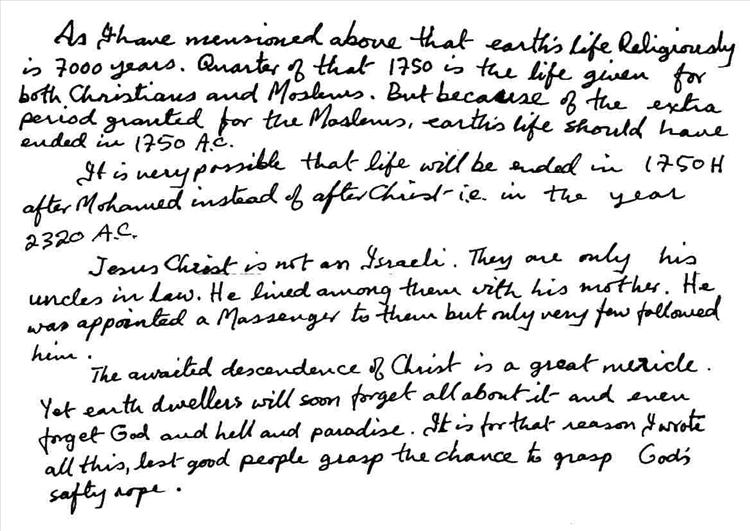 As I have mensioned above that earth's life Religiously
is 7000 years. Quarter of that 1750 is the life given for
both Christians and Moslems. But because of the extra
period granted for the Moslems, earth's life should have
ended in 1750 A.C.
It is very possible that life will be ended in 1750 H
after Mohamed instead of after Christ - i.e. in the year
2320 A.C.
Jesus Christ is not an Israeli. They are only his
uncles in law. He lived among them with his mother. He
was appointed a Massenger to them but only very few followed
him.
The awaited descendence of Christ is a great mericle.
Yet earth dwellers will soon forget all about it and even
forget God and hell and paradise. It is for that reason I wrote
all this, lest good people grasp the chance to grasp God's
safty rope.